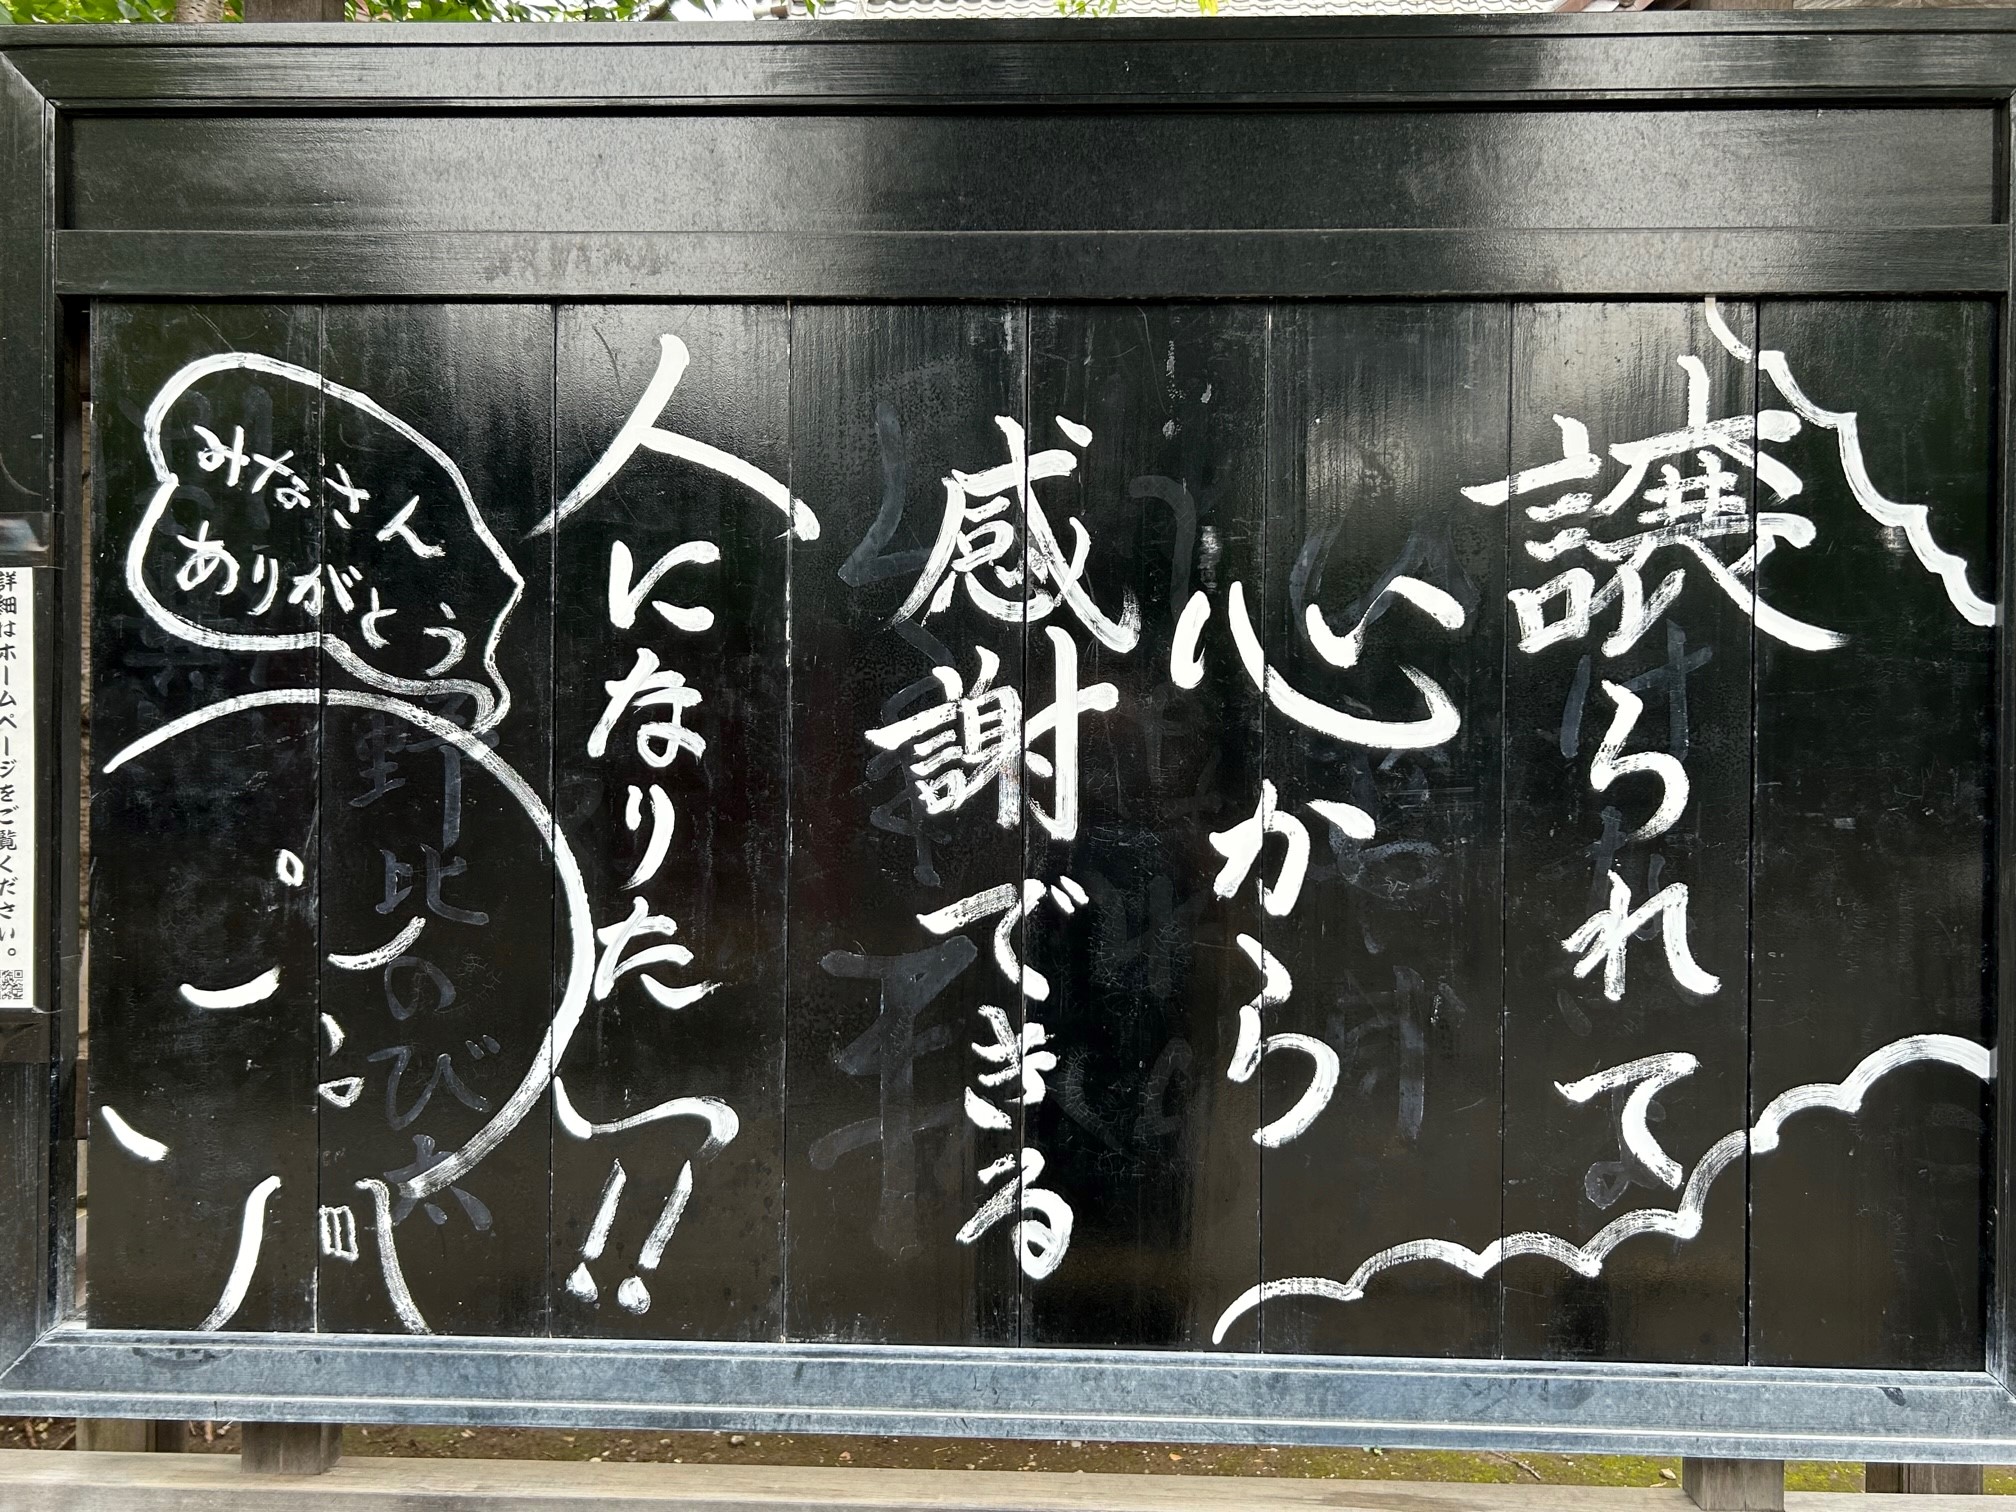 譲られて
心から
感謝できる
人になりたいっ!!
みなさん
ありがとう
野比のび太
詳細はホームページをご覧ください。